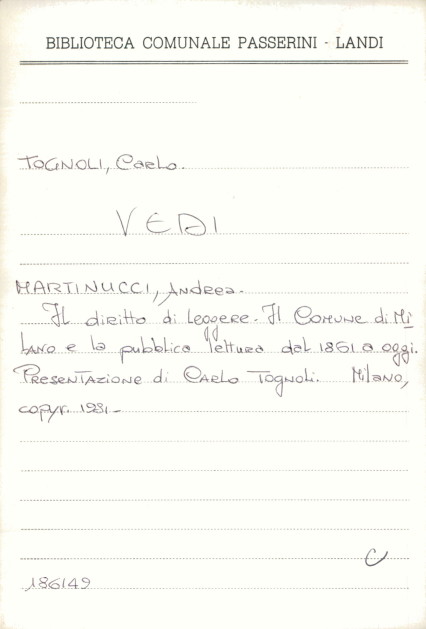 BIBLIOTECA COMUNALE PASSERINI - LANDI
TOGNOLI, Carlo.
VEDI
MARTINUCCI, Andrea.
Il diritto di leggere. Il Comune di Mi
lano e la pubblica lettura dal 1861 a oggi.
Presentazione di Carlo Tognoli. Milano,
copyr. 1981.
C
186149